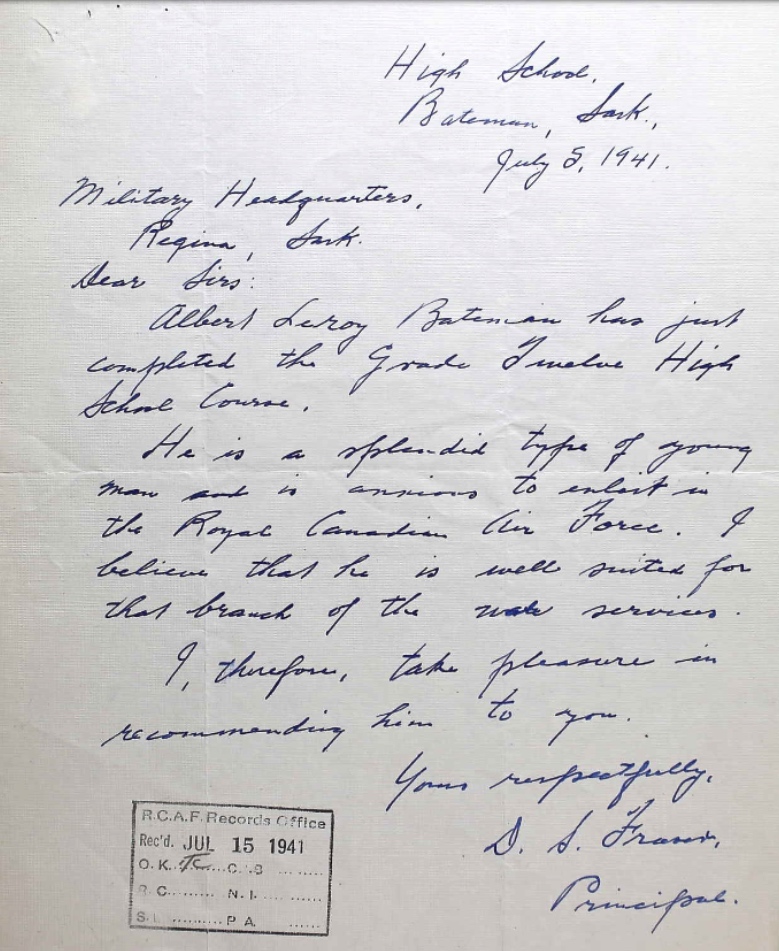 High School,
Bateman, Sask.,
July 5, 1941.
Military Headquarters,
Regina, Sask.
Dear Sirs:
Albert Leroy Bateman has just
completed the Grade Twelve High
School Course.
He is a splendid type of young
man and is anxious to enlist in
the Royal Canadian Air Force. I
believe that he is well suited for
that branch of the war services.
I, therefore, take pleasure in
recommending him to you.
Yours respectfully,
D. S. Fraser,
Principal.
R.C.A.F. Records Office
Rec'd. JUL 15 1941
O.K. ........ C.S ........
R.C. ........ N.I. ........
S.L. ........ P.A. ........